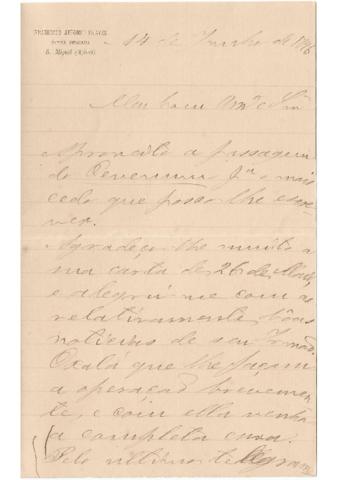 FRANCISCO AFFONSO CHAVES
S. Miguel (Açores)
14 de Junho de 1906
Meu bom Amº e Snr
Aproveito a passagem
do Peverumu Jª e mais
cedo que posso lhe escre-
ver.
Agradeço lhe muito a
sua carta de 26 de Maio,
e alegrei me com as
relativamente bôas
noticias de seu Irmão.
Oxalá que lhe façam
a operação brevemen-
te, e com ella venha
a completa cura.
Pelo ultimo telegram